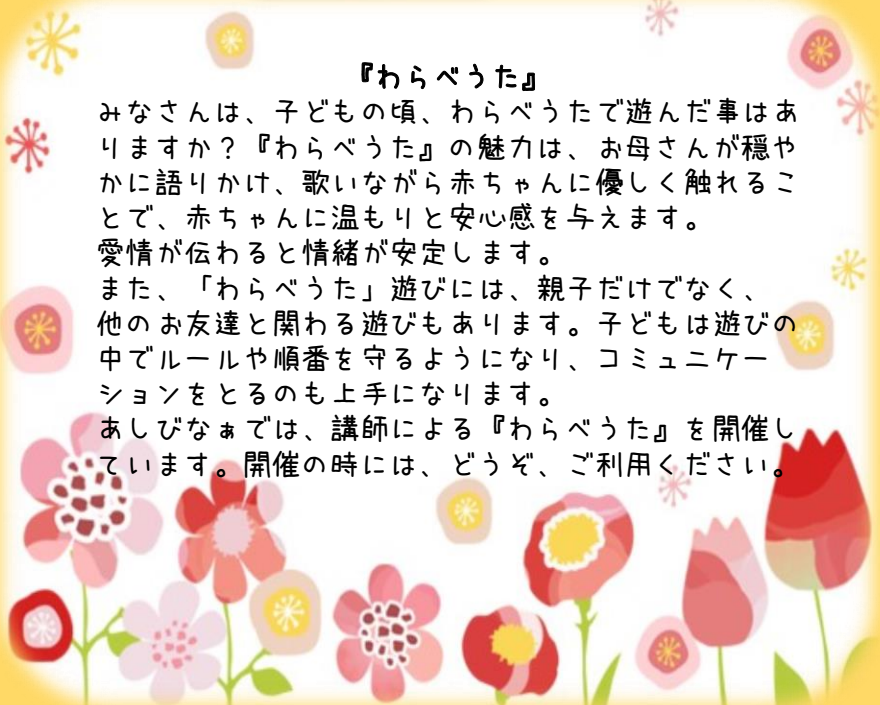 『わらべうた』
みなさんは、子どもの頃、わらべうたで遊んだ事はあ
りますか？『わらべうた』の魅力は、お母さんが穏や
かに語りかけ、歌いながら赤ちゃんに優しく触れるこ
とで、赤ちゃんに温もりと安心感を与えます。
愛情が伝わると情緒が安定します。
また、「わらべうた」遊びには、親子だけでなく、
他のお友達と関わる遊びもあります。子どもは遊びの
中でルールや順番を守るようになり、コミュニケー
ションをとるのも上手になります。
あしびなぁでは、講師による『わらべうた』を開催し
ています。開催の時には、どうぞ、ご利用ください。